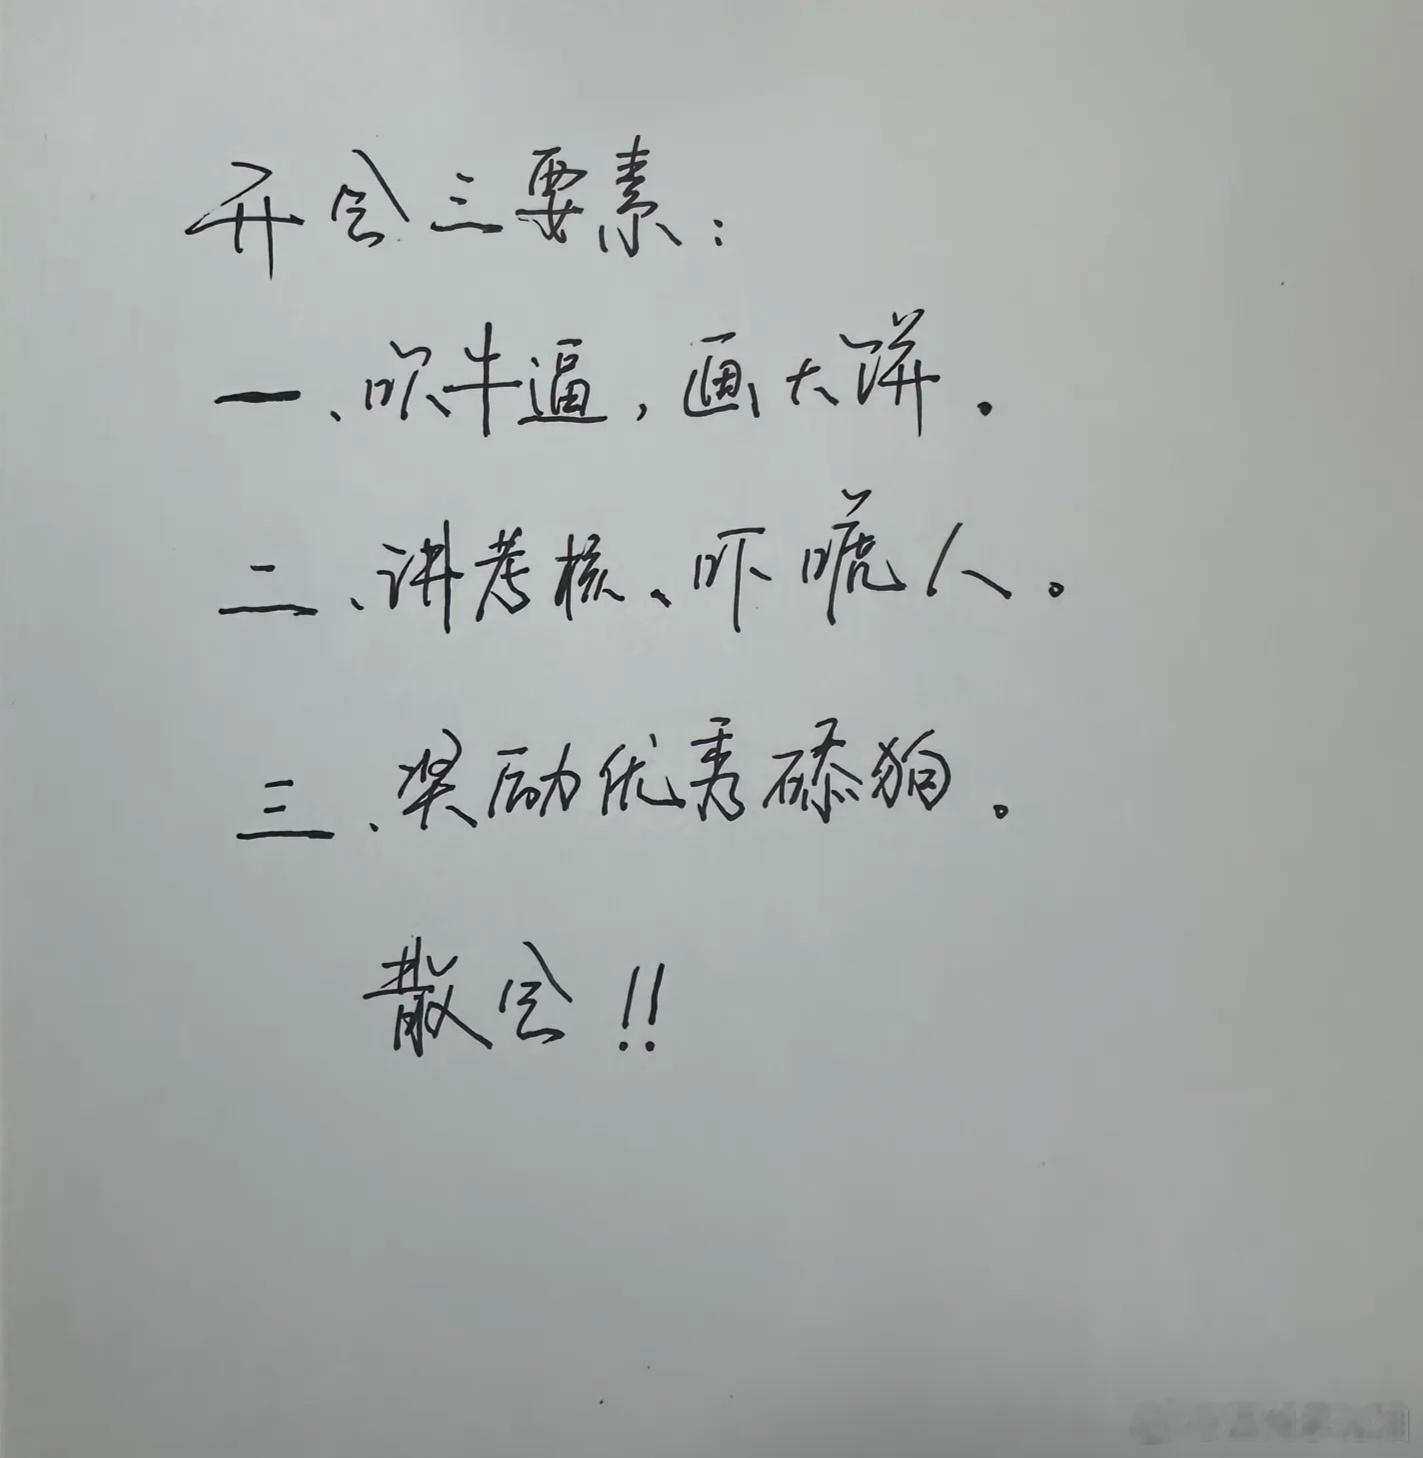 开会三要素：
一、吹牛逼，画大饼．
二、讲考核、吓唬人。
三、奖励优秀舔狗。
散会！！